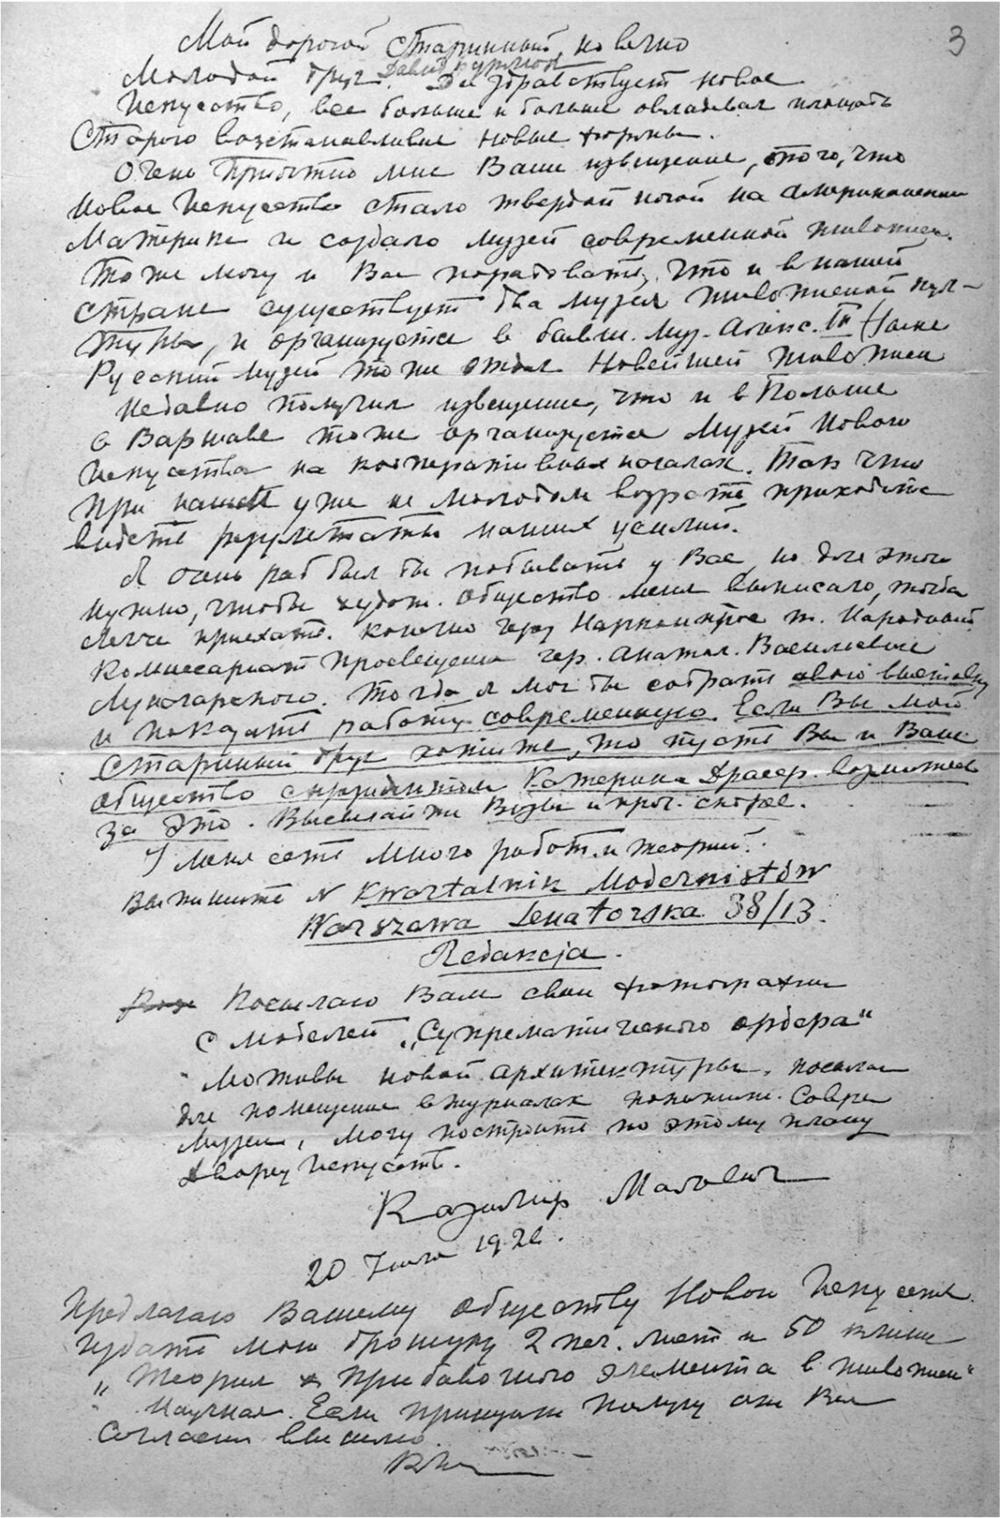 3
Мой дорогой Старинный, но вечно
Молодой друг Давид Бурлюк. Да здравствует новое
Искусство, все больше и больше овладевая площадь
Старого возстанавливая новые формы.
Очень приятно мне Ваше извещение, того, что
Новое Искусство стало твердой ногой на американском
Материке и создало музей современной живописи.
Тоже могу и Вас порадовать, что и в нашей
стране существует два музея живописной куль-
туры, и организуется в бывш. Муз. Алекс. III
Русский музей тоже отдел Новейшей живописи
Недавно получил извещение, что и в Польше
в Варшаве тоже организуется Музей Нового
Искусства на кооперативных началах. Так что
при нашем уже не молодом возрасте приходится
видеть результаты наших усилий.
Я очень рад был бы побывать у Вас, но для этого
нужно, чтобы худож. общество меня выписало, тогда
легче приехать. конечно через Наркомпрос т. Народный
Комиссариат Просвещения чер. Анатол. Васильевича
Луначарского. тогда я мог бы собрать свою выставку
и показать работу современную. Если Вы мой
Старинный друг хотите, то пусть Вы и Ваше
общество с президентом Катерина Драгер. возьмется
за это. Высылайте Визы и проч. скорее.
У меня есть много работ и теорий.
Вы пишите N Kwartalnik Modernistów
Warszawa Senatorska 38/13.
Redakcja.
Посылаю Вам свои фотографии
с моделей „Супрематического ордера“
Мотивы новой архитектуры, посылаю
для помещения в журналах покажите. Совре
музеи, могу построить по этому плану
Дворец Искусств.
Казимир Малевич
20 Июля 1926.
Предлагаю Вашему обществу Новой Искусств.
издать мою брошуру 2 печ. лист и 50 клише
„Теория прибавочного элемента в живописи“
Научная. Если принципе получу от Вас
согласен вышлю.
КМ